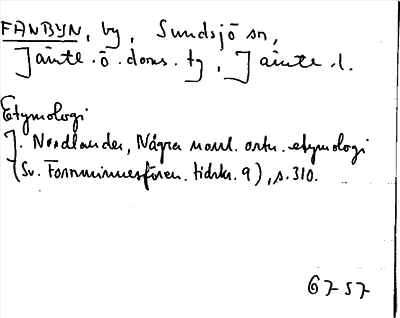 FANBYN, by, Sundsjö sn,
Jämte. ö. doms. tg, Jämte. l.
Etymologi
J. Nordlander, Några norrl. ortn. etymologi
(Sv. Fornminnesfören. tidskr. 9), s. 310.
67 57